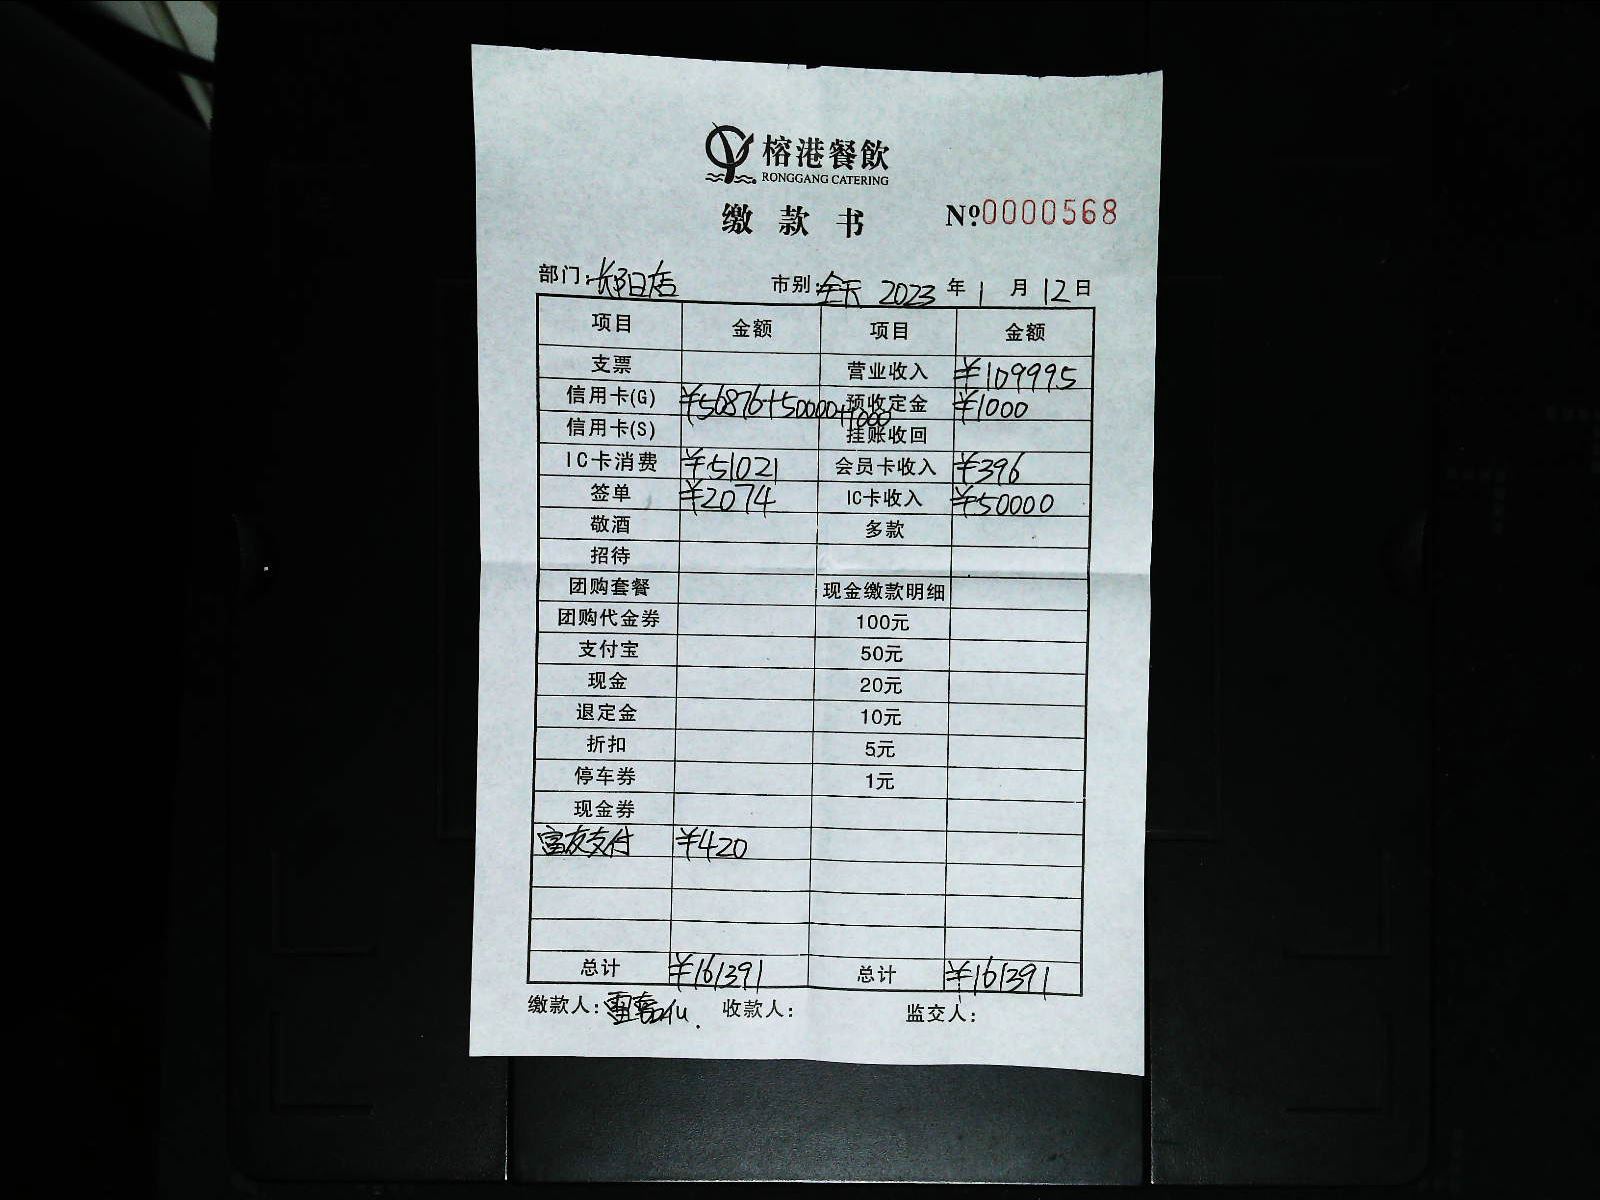 榕港餐飲
RONGGANG CATERING
缴款书 Nº0000568
部门: 郑日店 市别: 全天 2023年1月12日
项目 金额 项目 金额
支票 营业收入 ¥109995
信用卡(G) ¥56876+50000+1000 预收定金 ¥1000
信用卡(S) 挂账收回
IC卡消费 ¥51021 会员卡收入 ¥396
签单 ¥2074 IC卡收入 ¥50000
敬酒 多款
招待
团购套餐 现金缴款明细
团购代金券 100元
支付宝 50元
现金 20元
退定金 10元
折扣 5元
停车券 1元
现金券
富友支付 ¥420
总计 ¥161391 总计 ¥161391
缴款人: 收款人: 监交人: